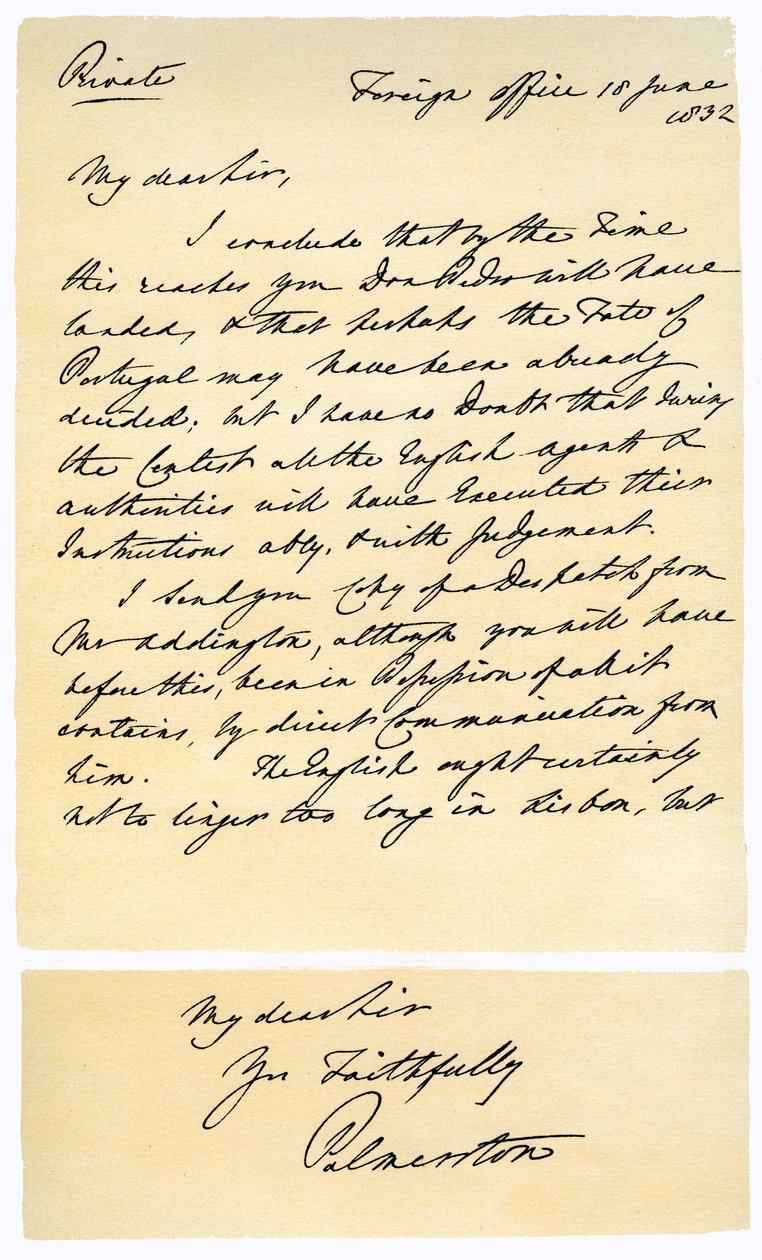 Private
Foreign Office 18 June
1832
My dear Sir,
I conclude that by the Time
this reaches you Don Pedro will have
landed, & that perhaps the Fate of
Portugal may have been already
decided; but I have no Doubt that during
the Contest all the English agents &
authorities will have Executed their
Instructions ably, & with Judgement.
I send you Copy of a Despatch from
Mr Addington, although you will have
before this, been in Possession of all it
contains, by direct Communication from
him. The English ought certainly
not to linger too long in Lisbon, but
My dear Sir
Yrs Faithfully
Palmerston